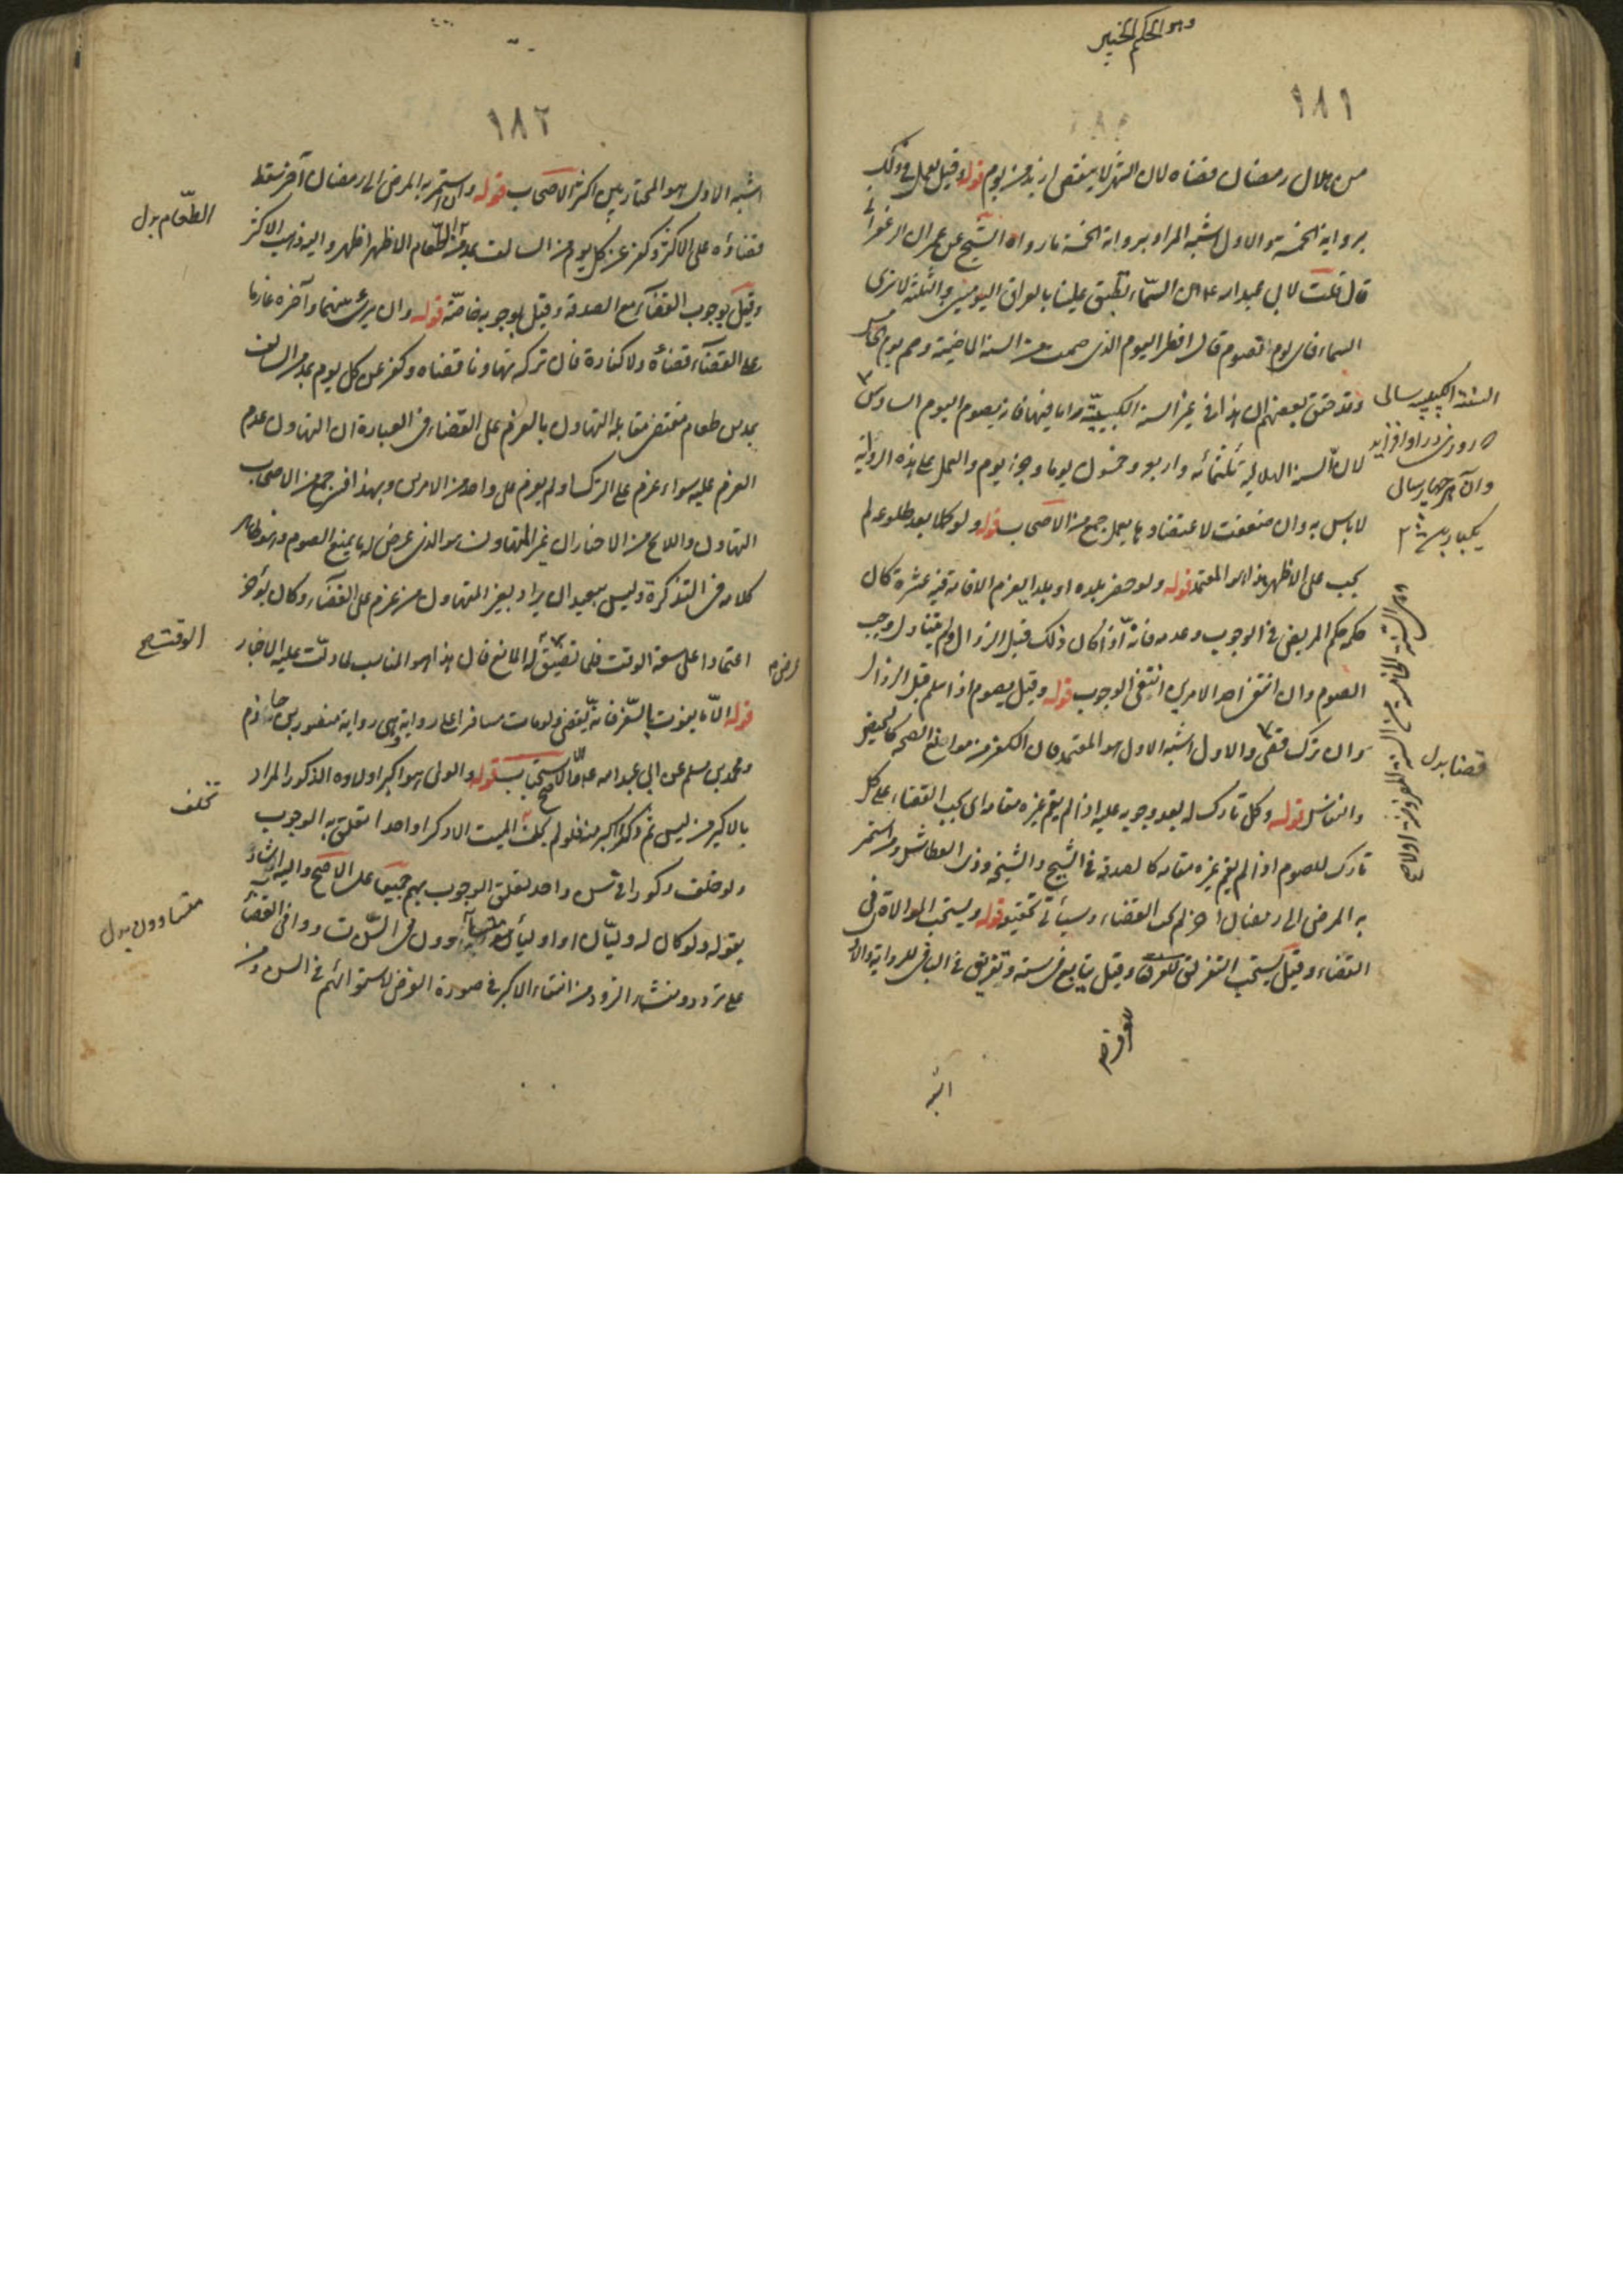 وهو الحكيم الخبير
١٨١
من هلال رمضان قضاه لان الشهر لا ينقص ازيد من يوم قوله وقيل يعمل في ذلك
برواية الخمسة والاول اشبه المراد برواية الخمسة ما رواه الشيخ عن عمران الزعفراني
قال قلت لابي عبد الله ع ان السماء تطبق علينا بالعراق اليومين والثلثة لا نرى
السماء فاى يوم نصوم قال افطر اليوم الذى صمت من السنة الماضية وصم يوم الخامس
وقد حقق بعضهم ان هذا فى غير السنة الكبيسية واما فيها فانه يصوم اليوم السادس
لان السنة الهلالية ثلثمائه واربع وخمسون يوما وجزء يوم والعمل على هذه الرواية
لا باس به وان ضعفت لاعتضادها بعمل جمع من الاصحاب قوله ولو اكلا بعد طلوعه لم
يجب على الاظهر هذا هو المعتمد قوله ولو حضر بلده او بلدا يعزم الاقامة فيه عشرة كان
حكمه حكم المريض فى الوجوب وعدمه فانه اذا كان ذلك قبل الزوال ولم يتناول وجب
الصوم وان انتفى احد الامرين انتفى الوجوب قوله وقيل يصوم اذا اسلم قبل الزوال
وان ترك قضى والاول اشبه الاول هو المعتمد فان الكفر من موانع الصحة كالحيض
والنفاس قوله وكل تارك له بعد وجوبه عليه اذا لم يقم غيره مقامه اى يجب القضاء على كل
تارك للصوم اذا لم يقم غيره مقامه كالصدقة فى الشيخ والشيخة وذى العطاش ومن استمر
به المرض الى رمضان آخر لم يجب القضاء وسيأتى تحقيقه قوله ويستحب الموالاة فى
القضاء وقيل يستحب التفريق للفرق وقيل يتابع فى ستة وتفريق فى الباقى للرواية والاول
اشبه
السنة الكبيسية سالى
وآن هر چهار سالى
يكبار
قضا بدل
١٨٢
اشبه الاول هو المختار بين اكثر الاصحاب قوله وان استمر به المرض الى رمضان آخر سقط
قضاؤه على الاكثر وكفر عن كل يوم من السالف بمد من الطعام الاظهر اظهر واليه ذهب الاكثر
وقيل بوجوب القضاء مع الصدقة وقيل بوجوبه خاصة قوله وان برئ بينهما وآخره عازما
على القضاء قضاه ولا كفارة فان تركه تهاونا قضاه وكفر عن كل يوم بمد من السالف
بمد من طعام مقتضى مقابلة التهاون بالعزم على القضاء فى العبارة ان التهاون عدم
العزم عليه سواء عزم على الترك او لم يعزم على واحد من الامرين وبهذا فسر جمع من الاصحاب
التهاون واللائح من الاخبار ان غير المتهاون هو الذى عرض له ما يمنع الصوم وهو ظاهر
كلامه فى التذكرة وليس ببعيد ان يراد بغير المتهاون من عزم على القضاء وكان يؤخر
اعتمادا على سعة الوقت فلما تضيق عرض له المانع فان هذا هو المناسب لما دلت عليه الاخبار
قوله الا ما يفوت بالسفر فانه يقضى ولو مات مسافرا على رواية هى رواية منصور بن حازم
ومحمد بن مسلم عن ابى عبد الله ع والاصح الاستحباب قوله والولى هو اكبر اولاده الذكور المراد
بالاكبر من ليس ثم ذكر اكبر منه فلو لم يخلف الميت الا ذكرا واحدا تعلق به الوجوب
ولو خلف ذكورا فى سن واحد تعلق الوجوب بهم جميعا على الاصح واليه اشار
بقوله ولو كان له وليان او اولياء متساوون فى السن تساووا فى القضاء
على تردد ومنشاء التردد من انتفاء الاكبر فى صورة الفرض لاستوائهم فى السن ومن
الطعام بدل
الوقت صح
تخلف
متساوون بدل